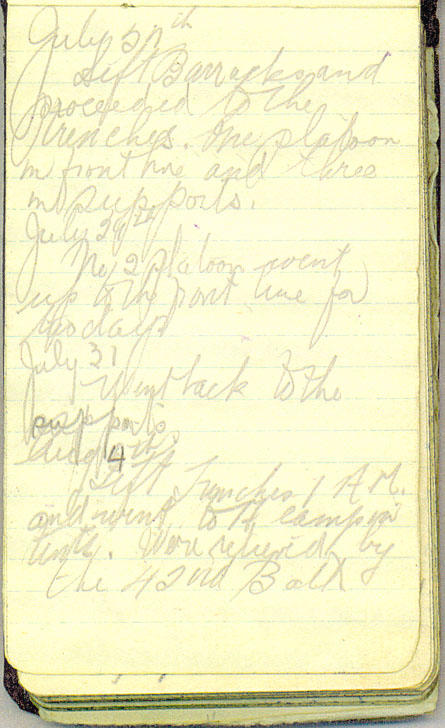 July 27th
Left Barracks and
proceeded to the
trenches. One platoon
in front line and three
in supports.
July 29th
No 2 platoon went
up to the front line for
two days
July 31
Went back to the
supports
Aug 4th
Left Trenches 1 A.M.
and went to the camp in
tents. Were relieved by
the 42nd Batt